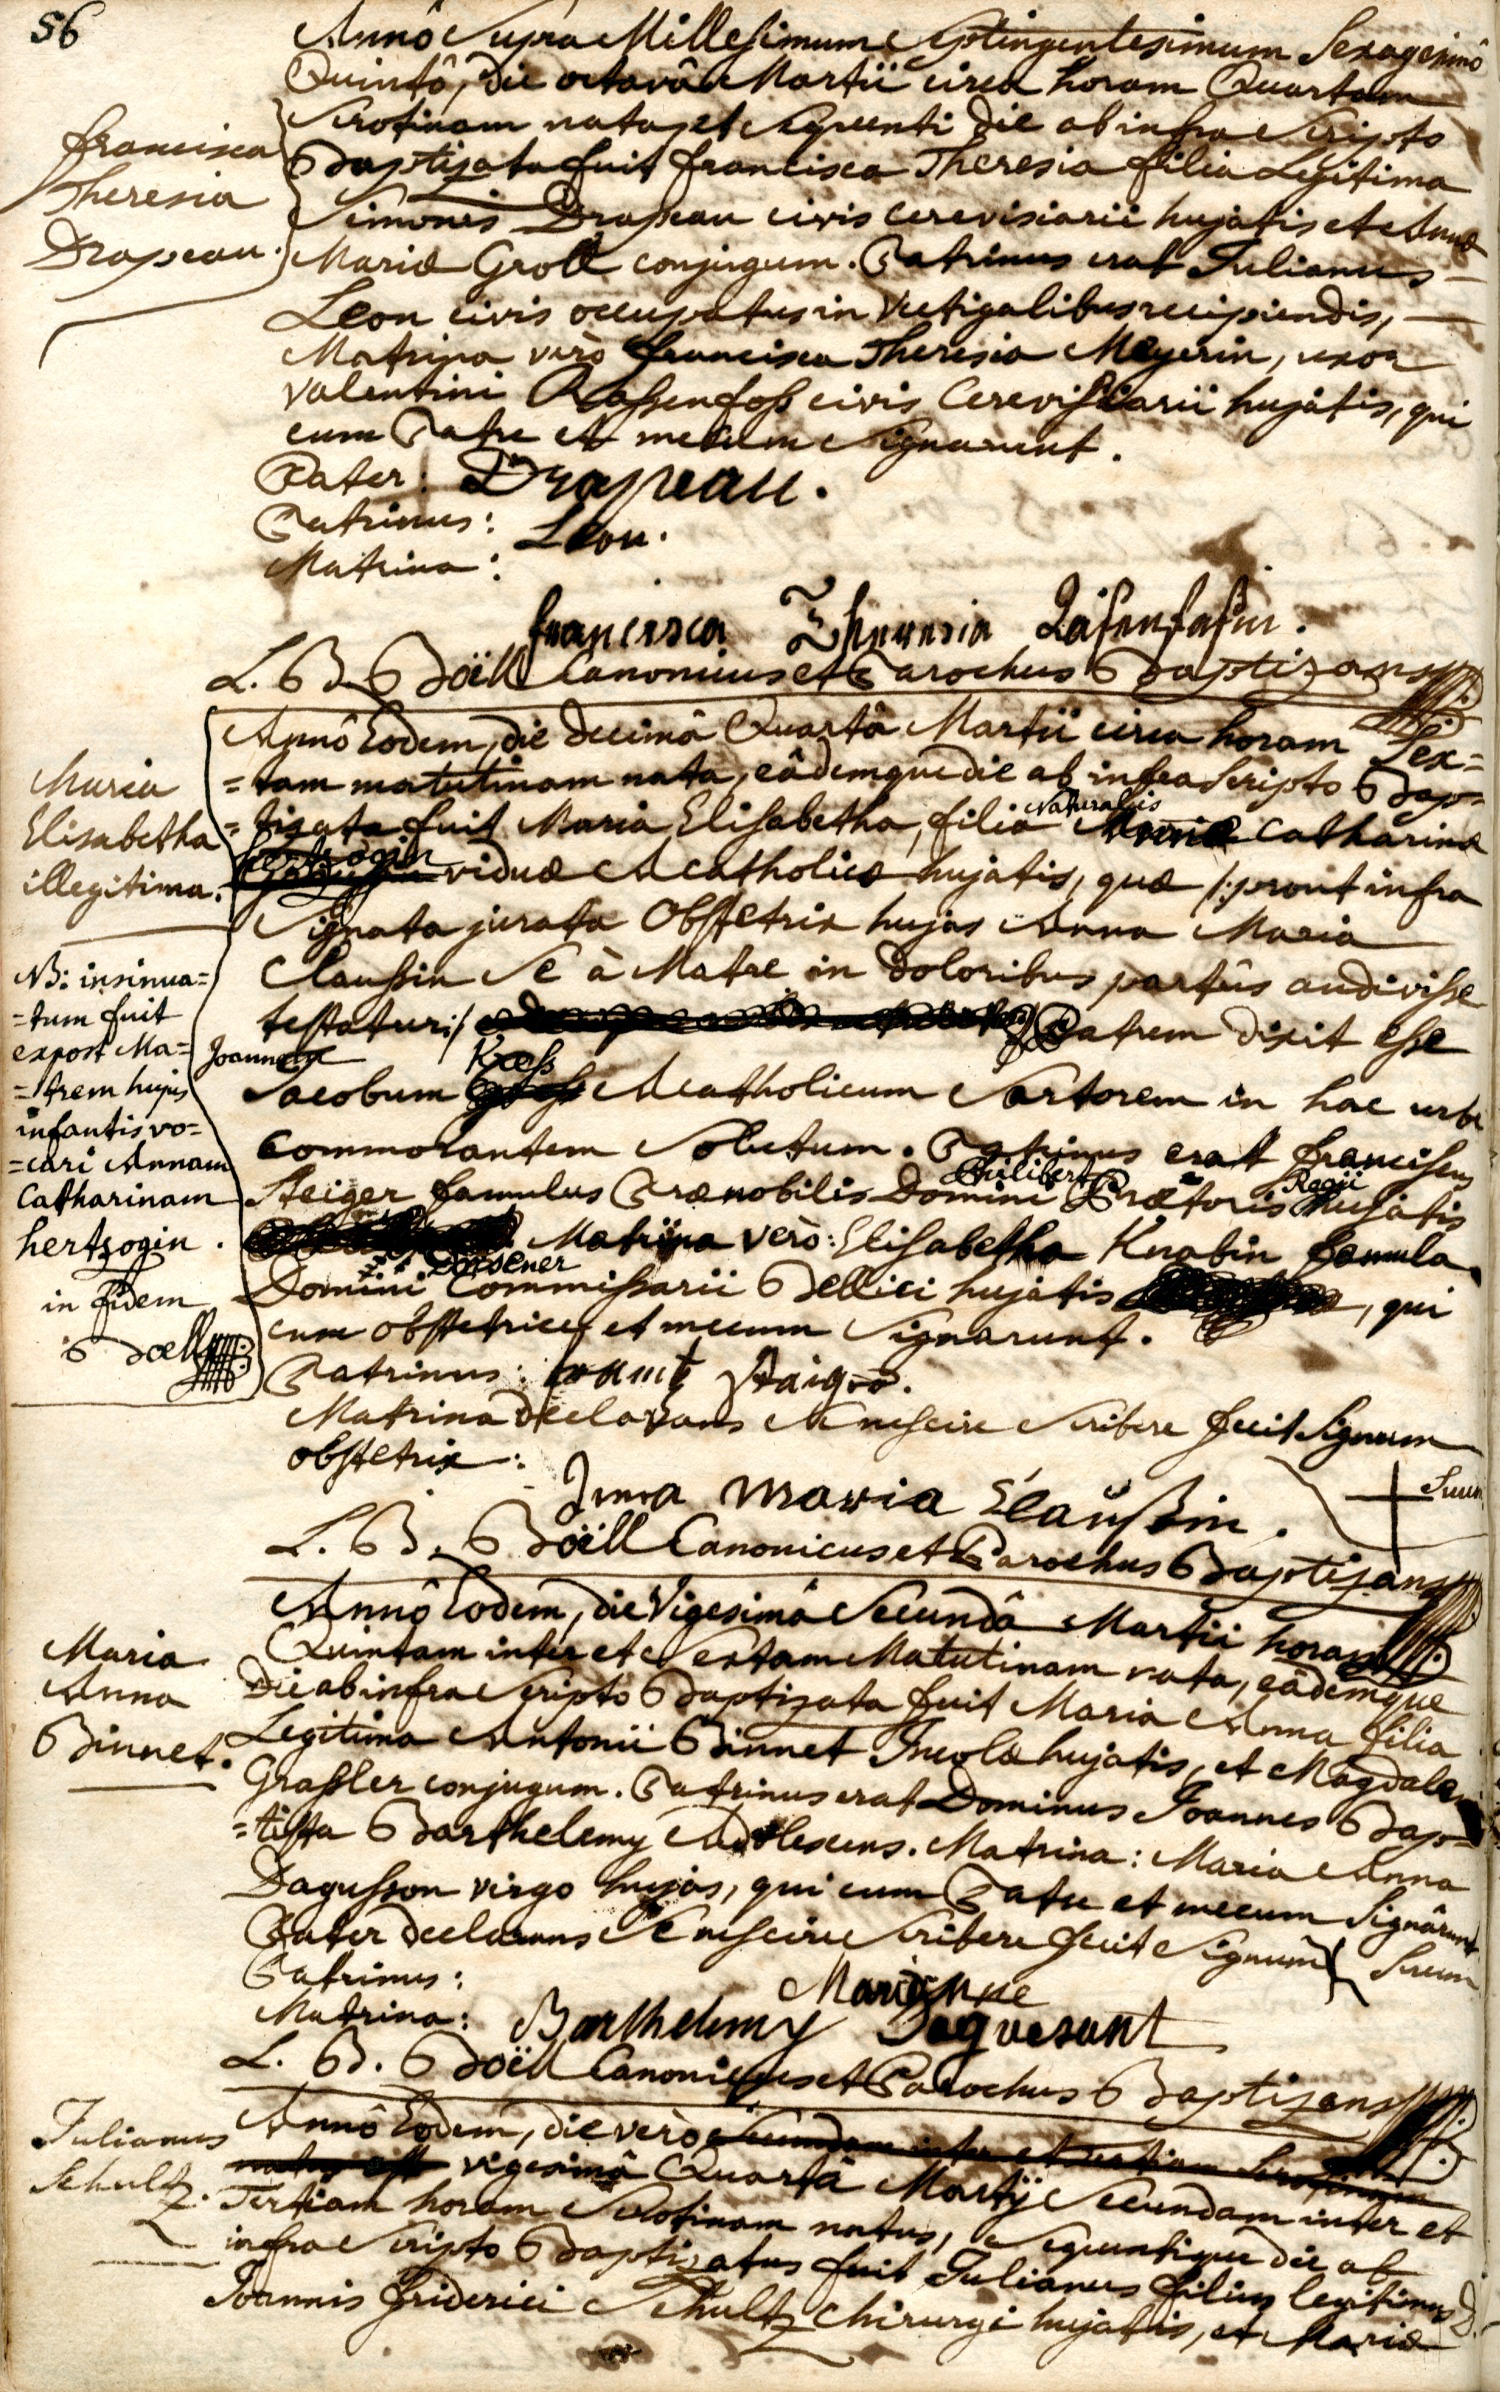 56
Annô Supra Millesimum Septingentesimum Sexagesimô
Quintô, die octavâ Martii circa horam Quartam
Serotinam nata, et Sequenti die ab infra Scripto
Baptizata fuit francisca Theresia filia Legitima
Simonis Drapeau civis Cerevisiarii hujatis et Annæ
Mariæ Groll conjugum. Patrinus erat Julianus
Leon civis occupatus in Vectigalibus recipiendis,
Matrina verò francisca Theresia Meyerin, uxor
Valentini Rassenfoss civis Cerevisiarii hujatis, qui
cum Patre et mecum Signarunt.
francisca
Theresia
Drapeau.
Pater: Drapeau.
Patrinus: Leon.
Matrina:
francisca Theresia Rasenfasin.
L. B. Boëll Canonicus et Parochus Baptizans
Annô Eodem, die Decimâ Quartâ Martii circa horam Sex=
=tam matutinam nata, eâdemque die ab infra Scripto Bap=
=tizata fuit Maria Elisabetha, filia Naturalis Catharinæ
hertzogin viduæ Acatholicæ hujatis, quæ /: prout infra
Signata jurata Obstetrix hujas Anna Maria
Claussin Se à Matre in Doloribus partûs audivisse
testatur :/ Patrem dixit esse
Joannem Kress
Jacobum Acatholicum Sartorem in hac urbe
commorantem Solutum. Patrinus erat franciscus
Steiger famulus Prænobilis Domini Philibert Prætoris Regii hujatis
Matrina verò: Elisabetha Knabin famula
Domini Commissarii Bellici hujatis, qui
cum obstetrice et mecum Signarunt.
Maria
Elisabetha
illegitima.
NB: insinua=
=tum fuit
expost Ma=
=trem hujus
infantis vo=
=cari Annam
Catharinam
hertzogin.
in fidem
Boëll
Patrinus: frantz Staiger.
Matrina Declarans Se nescire Scribere fecit Signum
Suum
obstetrix:
Anna Maria Claussin.
L. B. Boëll Canonicus et Parochus Baptizans
Annô Eodem, die Vigesimâ Secundâ Martii horam
Quintam inter et Sextam Matutinam nata, eâdemque
Die ab infra Scripto Baptizata fuit Maria Anna filia
Legitima Antonii Binnet Incolæ hujatis, et Magdalenæ
Grassler conjugum. Patrinus erat Dominus Joannes Bap=
=tista Barthelemy Adolescens. Matrina: Maria Anna
Dagusson virgo hujas, qui cum Patre et mecum Signârunt
Pater Declarans Se nescire Scribere fecit Signum Suum
Maria
Anna
Binnet.
Patrinus:
Matrina: Barthelemy Marianne Daguesant
L. B. Boëll Canonicus et Parochus Baptizans
Annô Eodem, die verò Secundam inter et tertiam Serotinam
natus est vigesimâ Quartâ Martij Secundam inter et
Tertiam horam Serotinam natus, Sequentique die ab
infra Scripto Baptizatus fuit Julianus filius legitimus
Joannis friderici Schultz Chirurgi hujatis, et Mariæ
Julianus
Schultz.